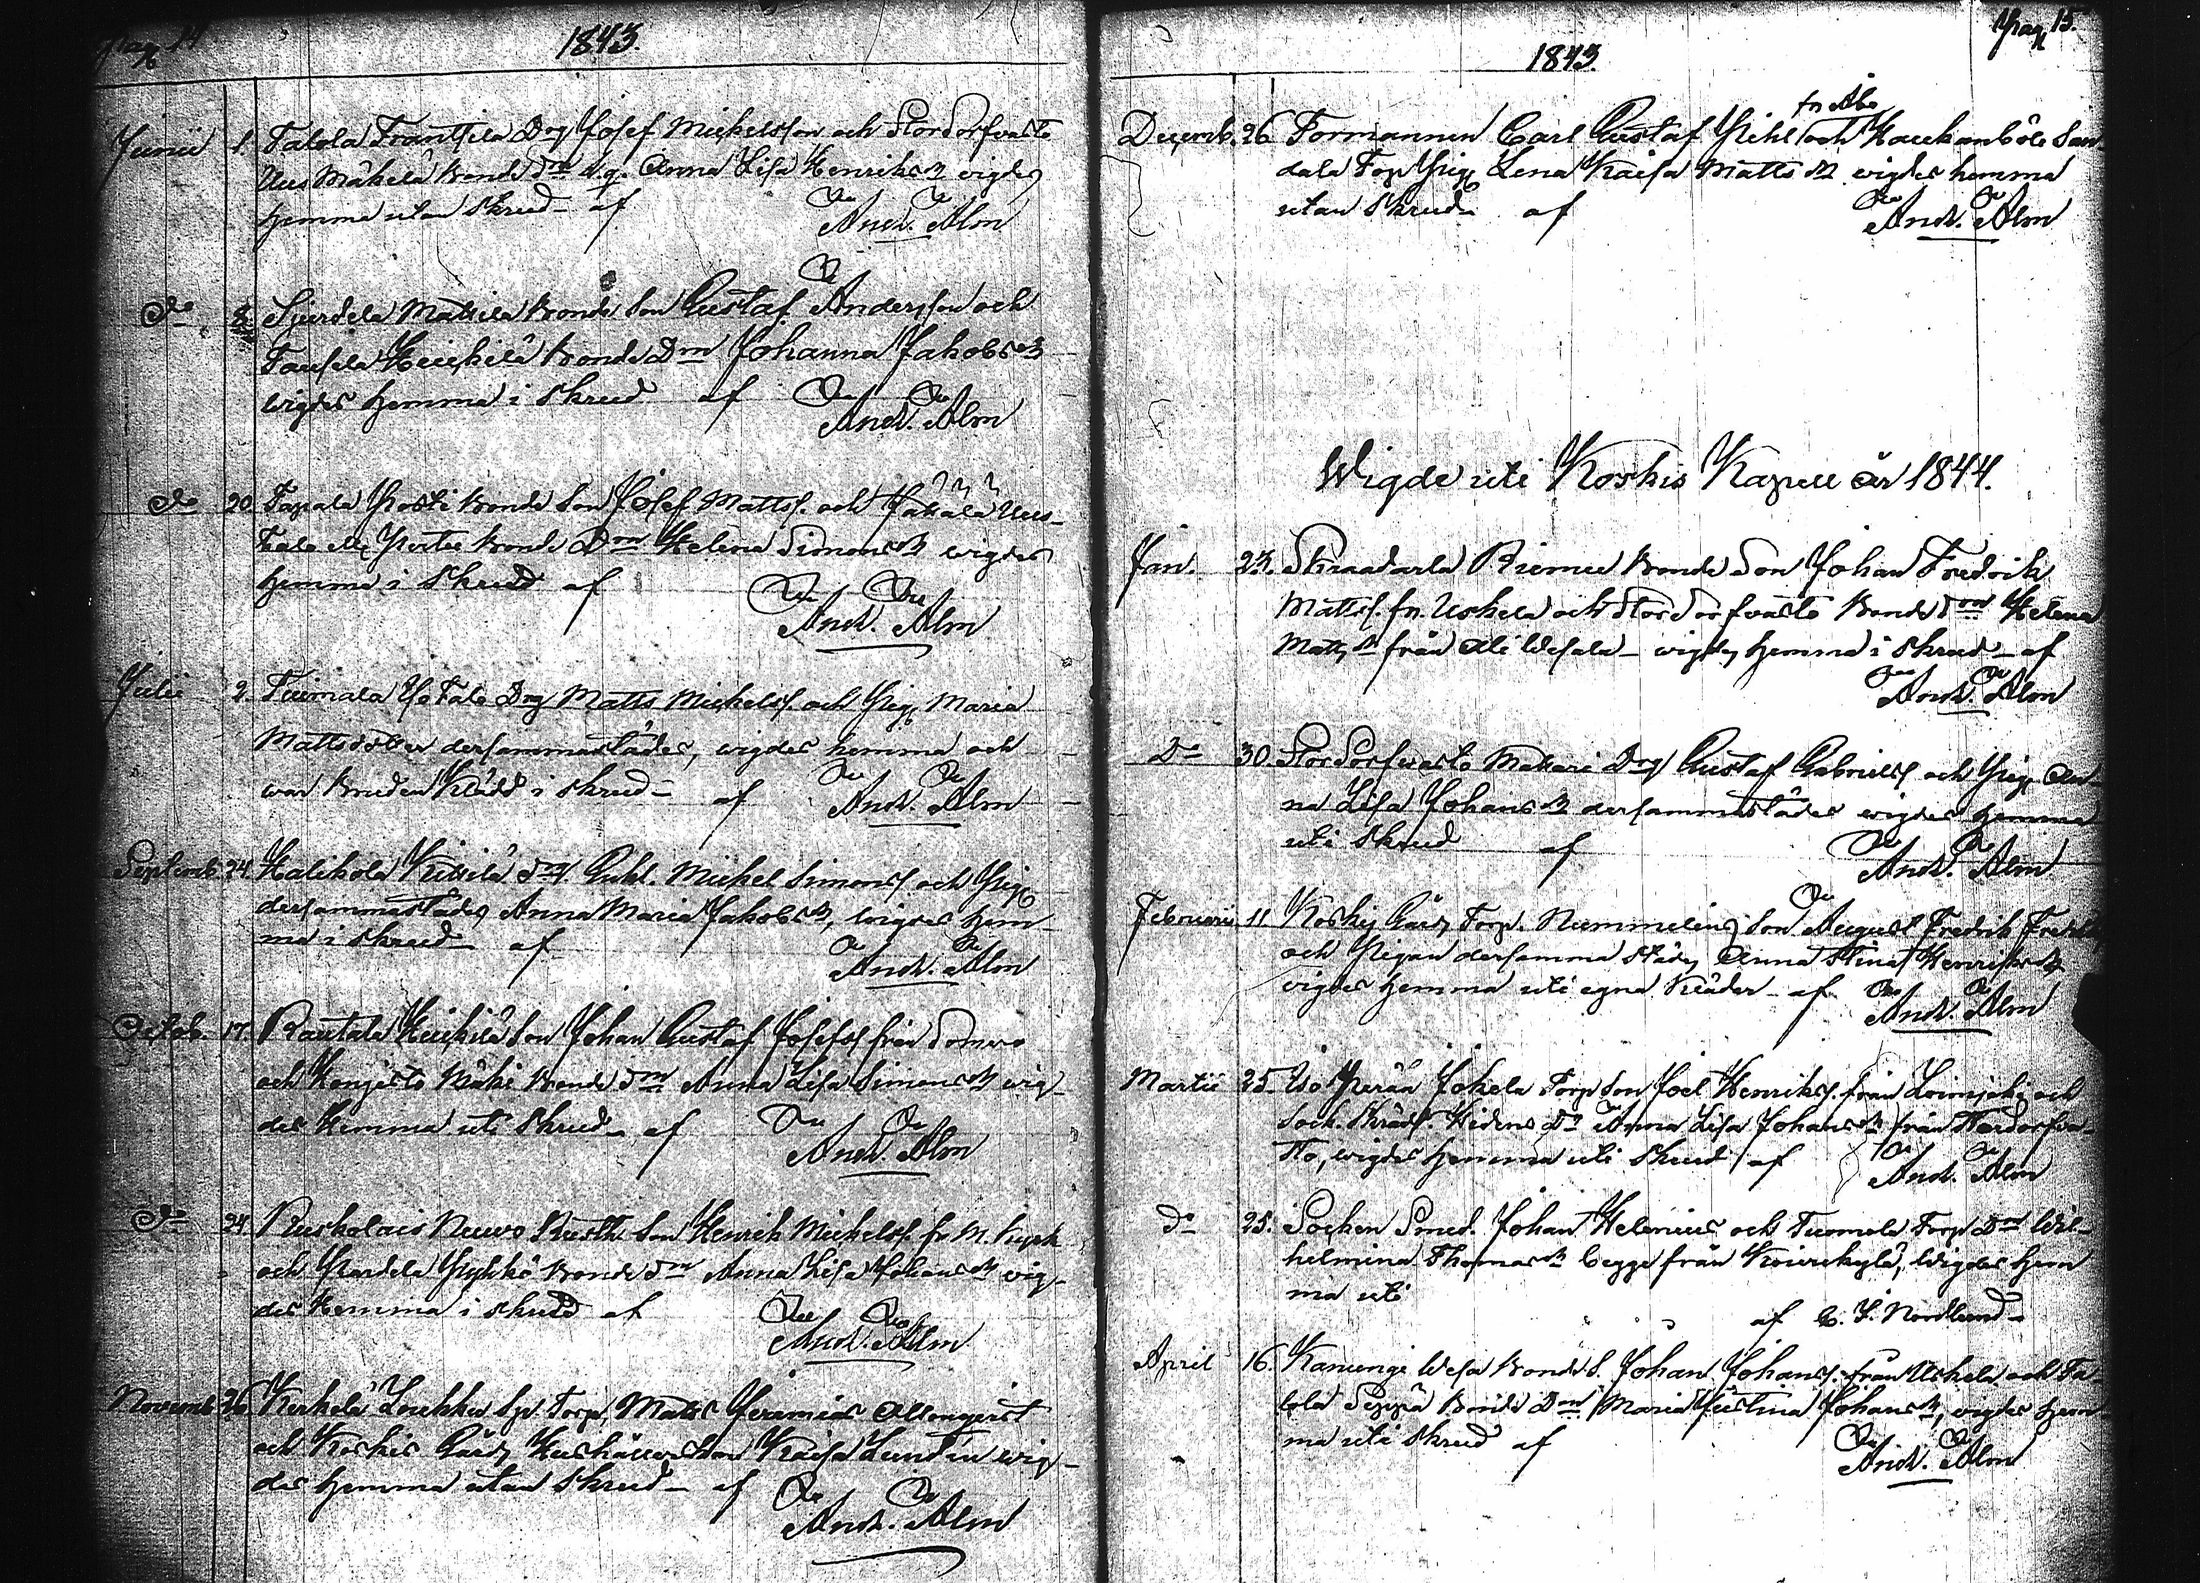 Pag 14
1843.
Junii 1. Talola Frantsila Drg Josef Mickelsson och Stordorfvasto
Uus Mäkelä Bonde Dr d.q. Anna Lisa Henriks Dr wigdes
hemma utan skrud af
And. Alm
Do 8. Sjurdela Mattila Bonde Son Gustaf Andersson och
Heickilä Bonde Dr Johanna Jakobs Dr
wigdes hemma i skrud af
And. Alm
Do 20. Tapala Posti Bonde Son Josef Matts. och Uus-
talo Bonde Dr Helena Simons Dr wigdes
hemma i skrud af
And. Alm
Julii 2. Tuimala Yletalo Drg Matts Mickels. och Pig. Maria
Mattsdotter dersammastädes, wigdes hemma och
war Bruden Klädd i skrud af
And. Alm
Septemb. 24. Halikola Kittilä Mickel Simons. och Pig.
dersammastädes Anna Maria Jakobs Dr, wigdes hem-
ma i skrud af
And. Alm
Octob. 17. Rautala Heickilä Son Johan Gustaf Josefs. från Somero
och Hongisto Mäki Bonde Dr Anna Lisa Simons Dr wig-
des Hemma uti skrud af
And. Alm
Do 24. Ruskolais Neuvo Rusth. Son Henrik Mickels. fr M.
och Pardela Pyhkö Bonde Dr Anna Lisa Johans Dr wig-
des Hemma i skrud af
And. Alm
Novemb. 26. Kerkelä Loukku Sp. Torp. Matts Jeremias Allonqvist
och Koskis Gårds Hushållerskan Kaisa Lundin wig-
des hemma utan skrud af
And. Alm
Pag 15.
1843.
fr Åbo
Decemb. 26. Formannen Carl Gustaf Pihl och Haukamböle San-
dala Torp Pig. Lena Kaisa Matts Dr wigdes hemma
utan skrud af
And. Alm
Wigde uti Koskis Kapell år 1844.
Jan. 23. Skraadarla Riemu Bonde Son Johan Fredrik
Matts. fr. Uskela och Stordorfvasto Bonde Dr Helena
Matts Dr från Ali Wesala wigdes hemma i skrud af
And. Alm
Do 30. Stordorfvasto Mattari Drg Gustaf Gabriels. och Pig. An-
na Lisa Johans Dr dersammastädes wigdes hemma
uti skrud af
And. Alm
Februarii 11. Koskis Gårds Torp. Nummelins Son August Fredrik
och Pigan dersammastädes Anna Stina Henriks Dr
wigdes hemma uti egna Kläder af
And. Alm
Martii 25. Iso Perää Jokela Torp Son Joel Henriks. från Loimijoki och
Sock. Skrädd. Hidens Dr Anna Lisa Johans Dr från Stordorfva-
sto, wigdes hemma uti skrud af
And. Alm
Do 25. Socken Smed. Johan Helenius och Tuomola Torp Dr Wil-
helmina Thomas Dr begge från Koivukylä, wigdes hem
ma uti
af C. J. Nordlund
April 16. Kanungi Wesa Bonde S. Johan Johans. från Uskela och Ta-
lola Seppä Bonde Dr Maria Justina Johans Dr, wigdes hem
ma uti skrud af
And. Alm